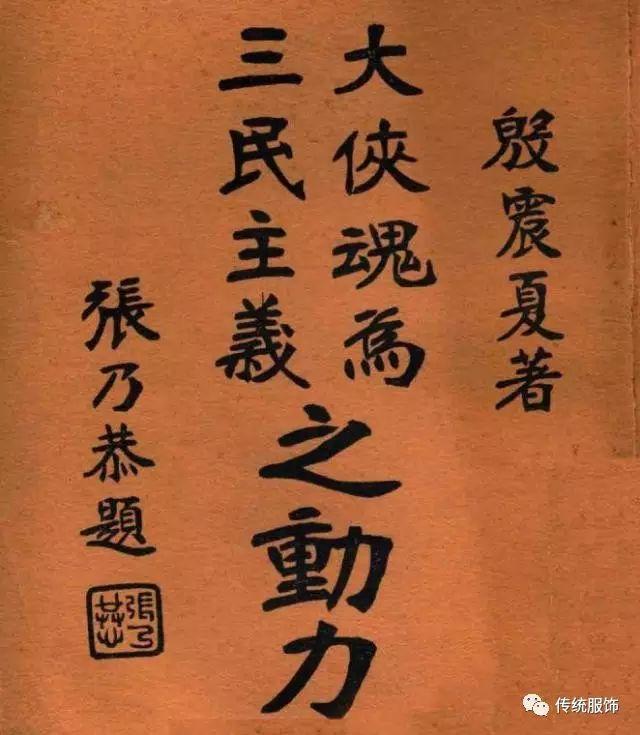 殷震夏著
大俠魂為
三民主義
之動力
張乃恭題
張乃恭
传统服饰